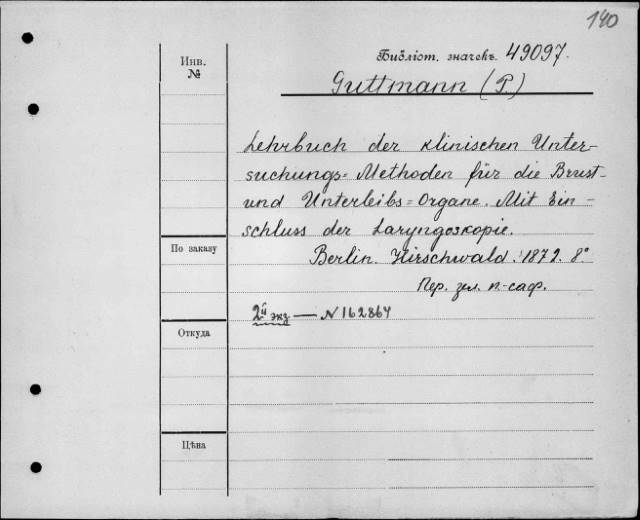 140
Инв.
№
Библіот. значекъ. 49097.
Guttmann (P.)
Lehrbuch der klinischen Unter-
suchungs=Methoden für die Brust-
und Unterleibs=Organe. Mit Ein-
schluss der Laryngoskopie.
По заказу
Berlin. Hirschwald. 1872. 8°
Пер. зел. п.-саф.
2й экз — N 162864
Откуда
Цѣна